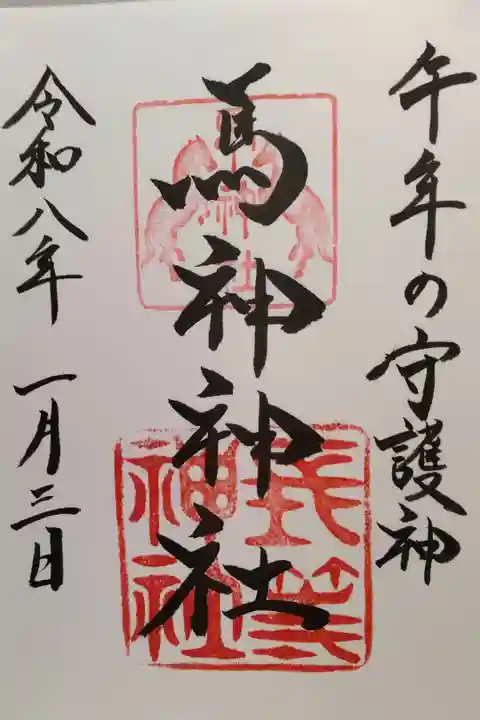 午年の守護神
馬神神社
令和八年 一月三日
神社